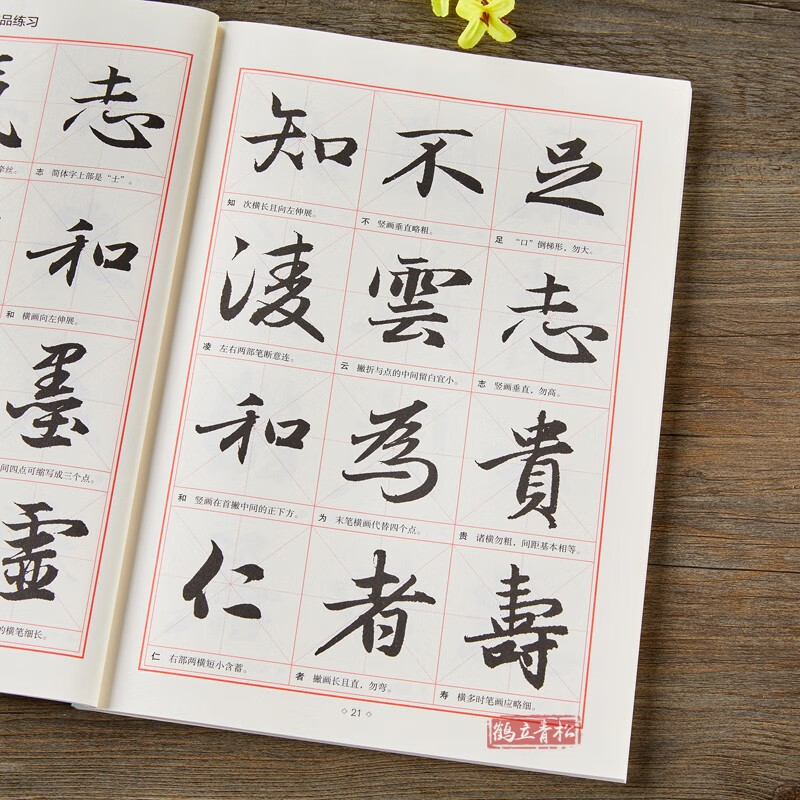 品练习
志
牵丝。
志 简体字上部是“士”。
和
和 横画向左伸展。
墨
间四点可缩写成三个点。
靈
的横笔细长。
知 不 足
知 次横长且向左伸展。
不 竖画垂直略粗。
足 “口”倒梯形，勿大。
凌 雲 志
凌 左右两部笔断意连。
云 撇折与点的中间留白宜小。
志 竖画垂直，勿高。
和 為 貴
和 竖画在首撇中间的正下方。
为 末笔横画代替四个点。
贵 诸横勿粗，间距基本相等。
仁 者 壽
仁 右部两横短小含蓄。
者 撇画长且直，勿弯。
寿 横多时笔画应略细。
21
鹤立青松